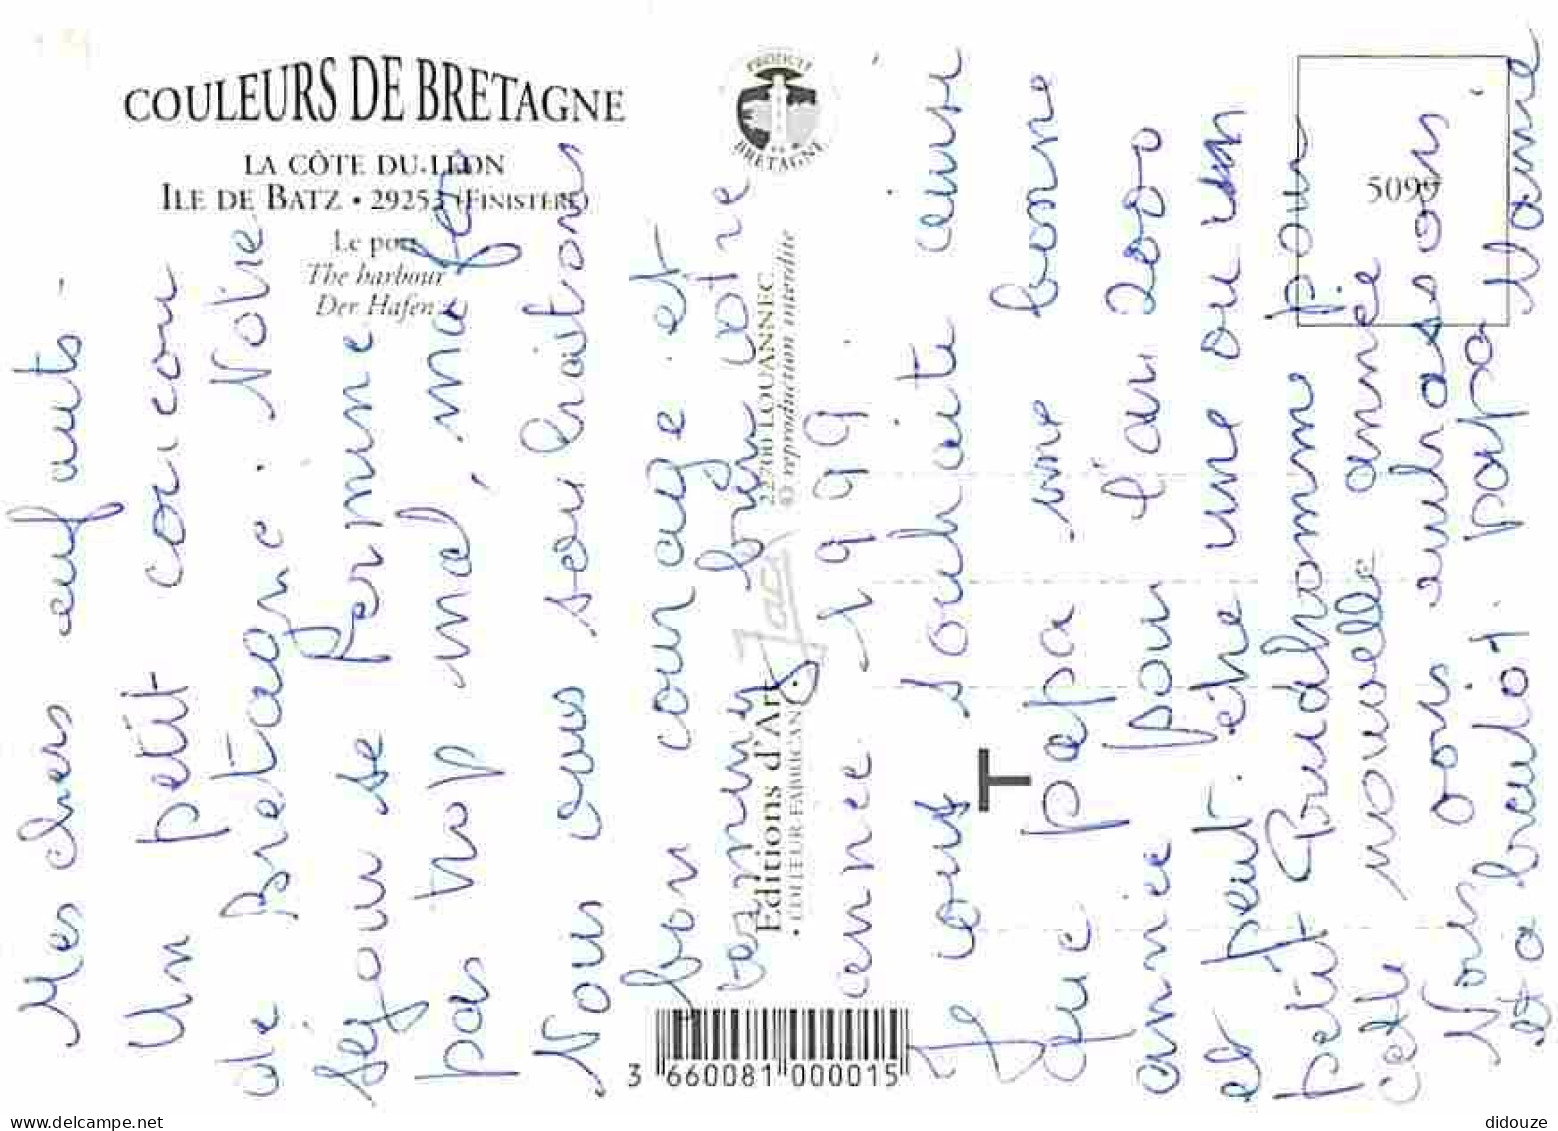 COULEURS DE BRETAGNE
LA CÔTE DU LEON
ILE DE BATZ • 29253 (FINISTÈRE)
Le port
The harbour
Der Hafen
PRODUIT
EN
BRETAGNE
5099
Editions d'Art Jack
• COULEUR FABRICANT
22700 LOUANNEC
© reproduction interdite
3 660081 000015
T
Mes chers enfants.
Un petit coucou
de Bretagne. Notre
séjour se termine
pas trop mal, ma foi
Nous vous souhaitons
bon courage et
terminez bien votre
année 1999
Je vous souhaite ainsi
que papa une bonne
année pour l'an 2000
et peut-être une ou un
petit Prudhomme pour
cette nouvelle année
Nous vous embrassons
et a bientôt. papa Mame